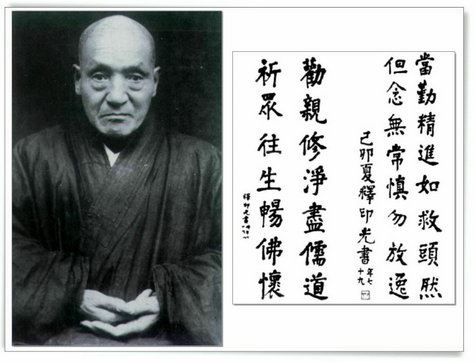 當勤精進如救頭然
但念無常慎勿放逸
己卯夏釋印光書
年七十九
勸親修淨盡儒道
祈眾往生暢佛懷
釋印光書